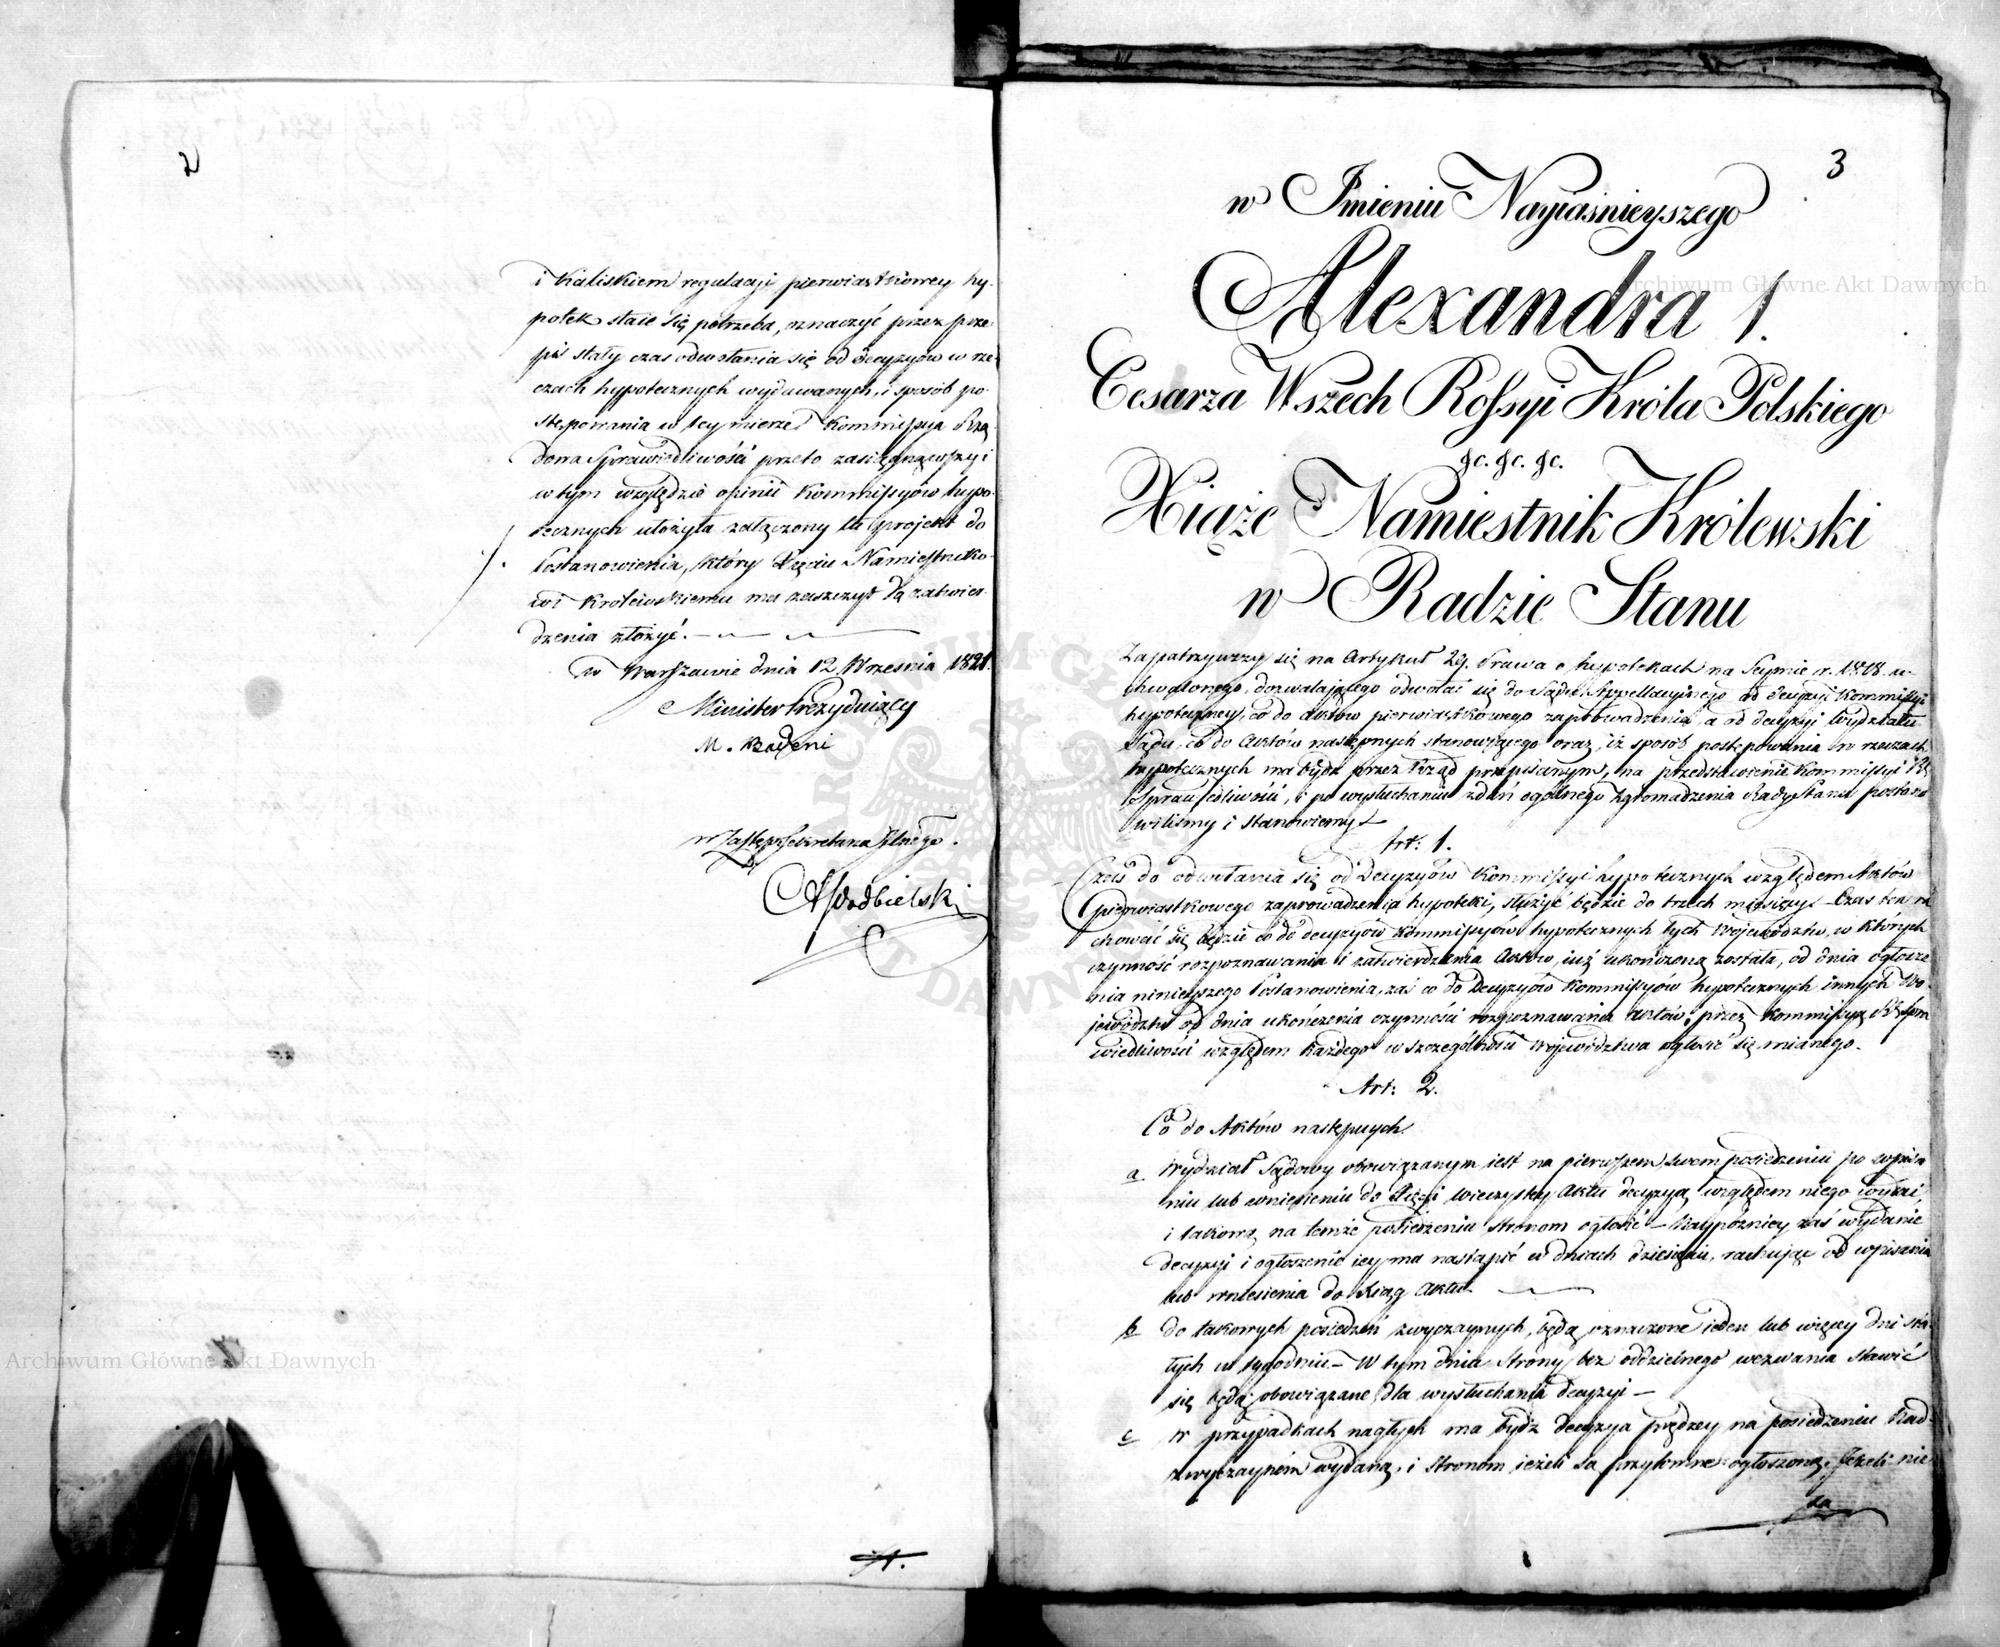 2
i Kaliskiem regulacyi pierwiastkowey hy-
potek staie się potrzeba, oznaczyć przez prze-
pis stały czas odwołania się od decyzyów w rze-
czach hypotecznych wydawanych, i sposób po-
stępowania w tey mierze Kommissya Rzą-
dowa Sprawiedliwości przeto zasięgnąwszy i
w tym względzie opinii Kommissyów hypo-
tecznych ułożyła załączony tu projekt do
Postanowienia, który Xięciu Namiestniko-
wi Królewskiemu ma zaszczyt do zatwier-
dzenia złożyć.
w Warszawie dnia 12 Września 1821.
Minister Prezyduiący
M. Badeni
w Zastęp: Sekretarza Jlnego.
3
w Imieniu Nayiaśnieyszego
Alexandra I.
Cesarza Wszech Rossyi Króla Polskiego
&c. &c. &c.
Xiąże Namiestnik Królewski
w Radzie Stanu
Zapatrzywszy się na Artykuł 29. Prawa o hypotekach na Seymie r. 1818. u-
chwalonego, dozwalaiącego odwołać się do Sądu Appellacyinego od decyzyi Kommissyi
hypoteczney, co do aktów pierwiastkowego zaprowadzenia, a od decyzyi Wydziału
Sądu, co do Aktów następnych stanowiącego oraz, iż sposób postępowania w rzeczach
hypotecznych ma bydź przez Rząd przepisanym, na przedstawienie Kommissyi R.
Sprawiedliwości, i po wysłuchaniu zdań ogólnego Zgromadzenia Rady Stanu postano
wiliśmy i stanowiemy
Art: 1.
Czas do odwołania się od Decyzyów Kommissyi hypotecznych względem Aktów
pierwiastkowego zaprowadzenia hypoteki, służyć będzie do trzech miesięcy – Czas ten ra
chować się będzie co do decyzyów Kommissyów hypotecznych tych Woiewództw, w których
czynność rozpoznawania i zatwierdzenia Aktów, iuż ukończoną została, od dnia ogłosze
nia ninieyszego Postanowienia, zaś co do Decyzyów Kommissyów hypotecznych innych Wo-
jewództw od dnia ukończenia czynności rozpoznawania aktów, przez Kommissyą R. Spra
wiedliwości względem każdego w szczególności Woiewództwa ogłosić się mianego.
Art: 2.
Co do Aktów następnych
a. Wydział Sądowy obowiązanym iest na pierwszem swem posiedzeniu po wpisa
niu lub wniesieniu do Xięgi wieczystey Aktu decyzyą względem niego wydać,
i takową na temże posiedzeniu Stronom ogłosić – Naypóźniey zaś wydanie
decyzyi i ogłoszenie iey ma nastąpić w dniach dziesięciu, rachuiąc od wpisania
lub wniesienia do Xiąg Aktu.
b. do takowych posiedzeń zwyczaynych, będą oznaczone ieden lub więcey dni sta-
łych w tygodniu – W tym dniu Strony bez oddzielnego wezwania stawić
się będą obowiązane dla wysłuchania decyzyi –
c. w przypadkach nagłych ma bydź Decyzya prędzey na posiedzeniu Nad-
zwyczaynem wydaną, i Stronom ieżeli są przytomne ogłoszoną. Jeżeli nie
są